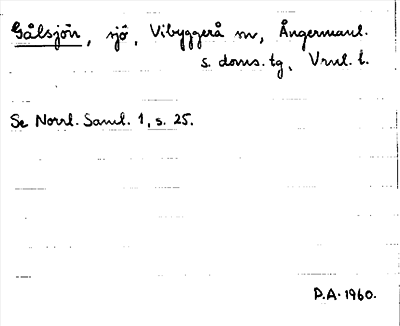 Gålsjön, sjö, Vibyggerå sn, Ångermanl.
s. doms. tg, Vrnl. l.
Se Norrl. Saml. 1, s. 25.
P.A. 1960.